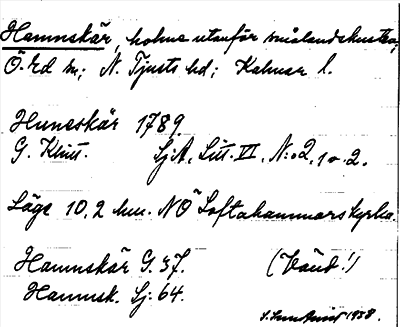 Hamnskär, holme utanför smålandskusten;
Ö. Ed sn; N. Tjusts hd; Kalmar l.
Hunsskär 1789.
G. Klint. SjA, Litt. VI, N:o 2, 1 o. 2.
Läge 10,2 km. NÖ Loftahammars kyrka.
Hamnskär G. 37. (Vänd!)
Hamnsk. Sj: 64.
1938.